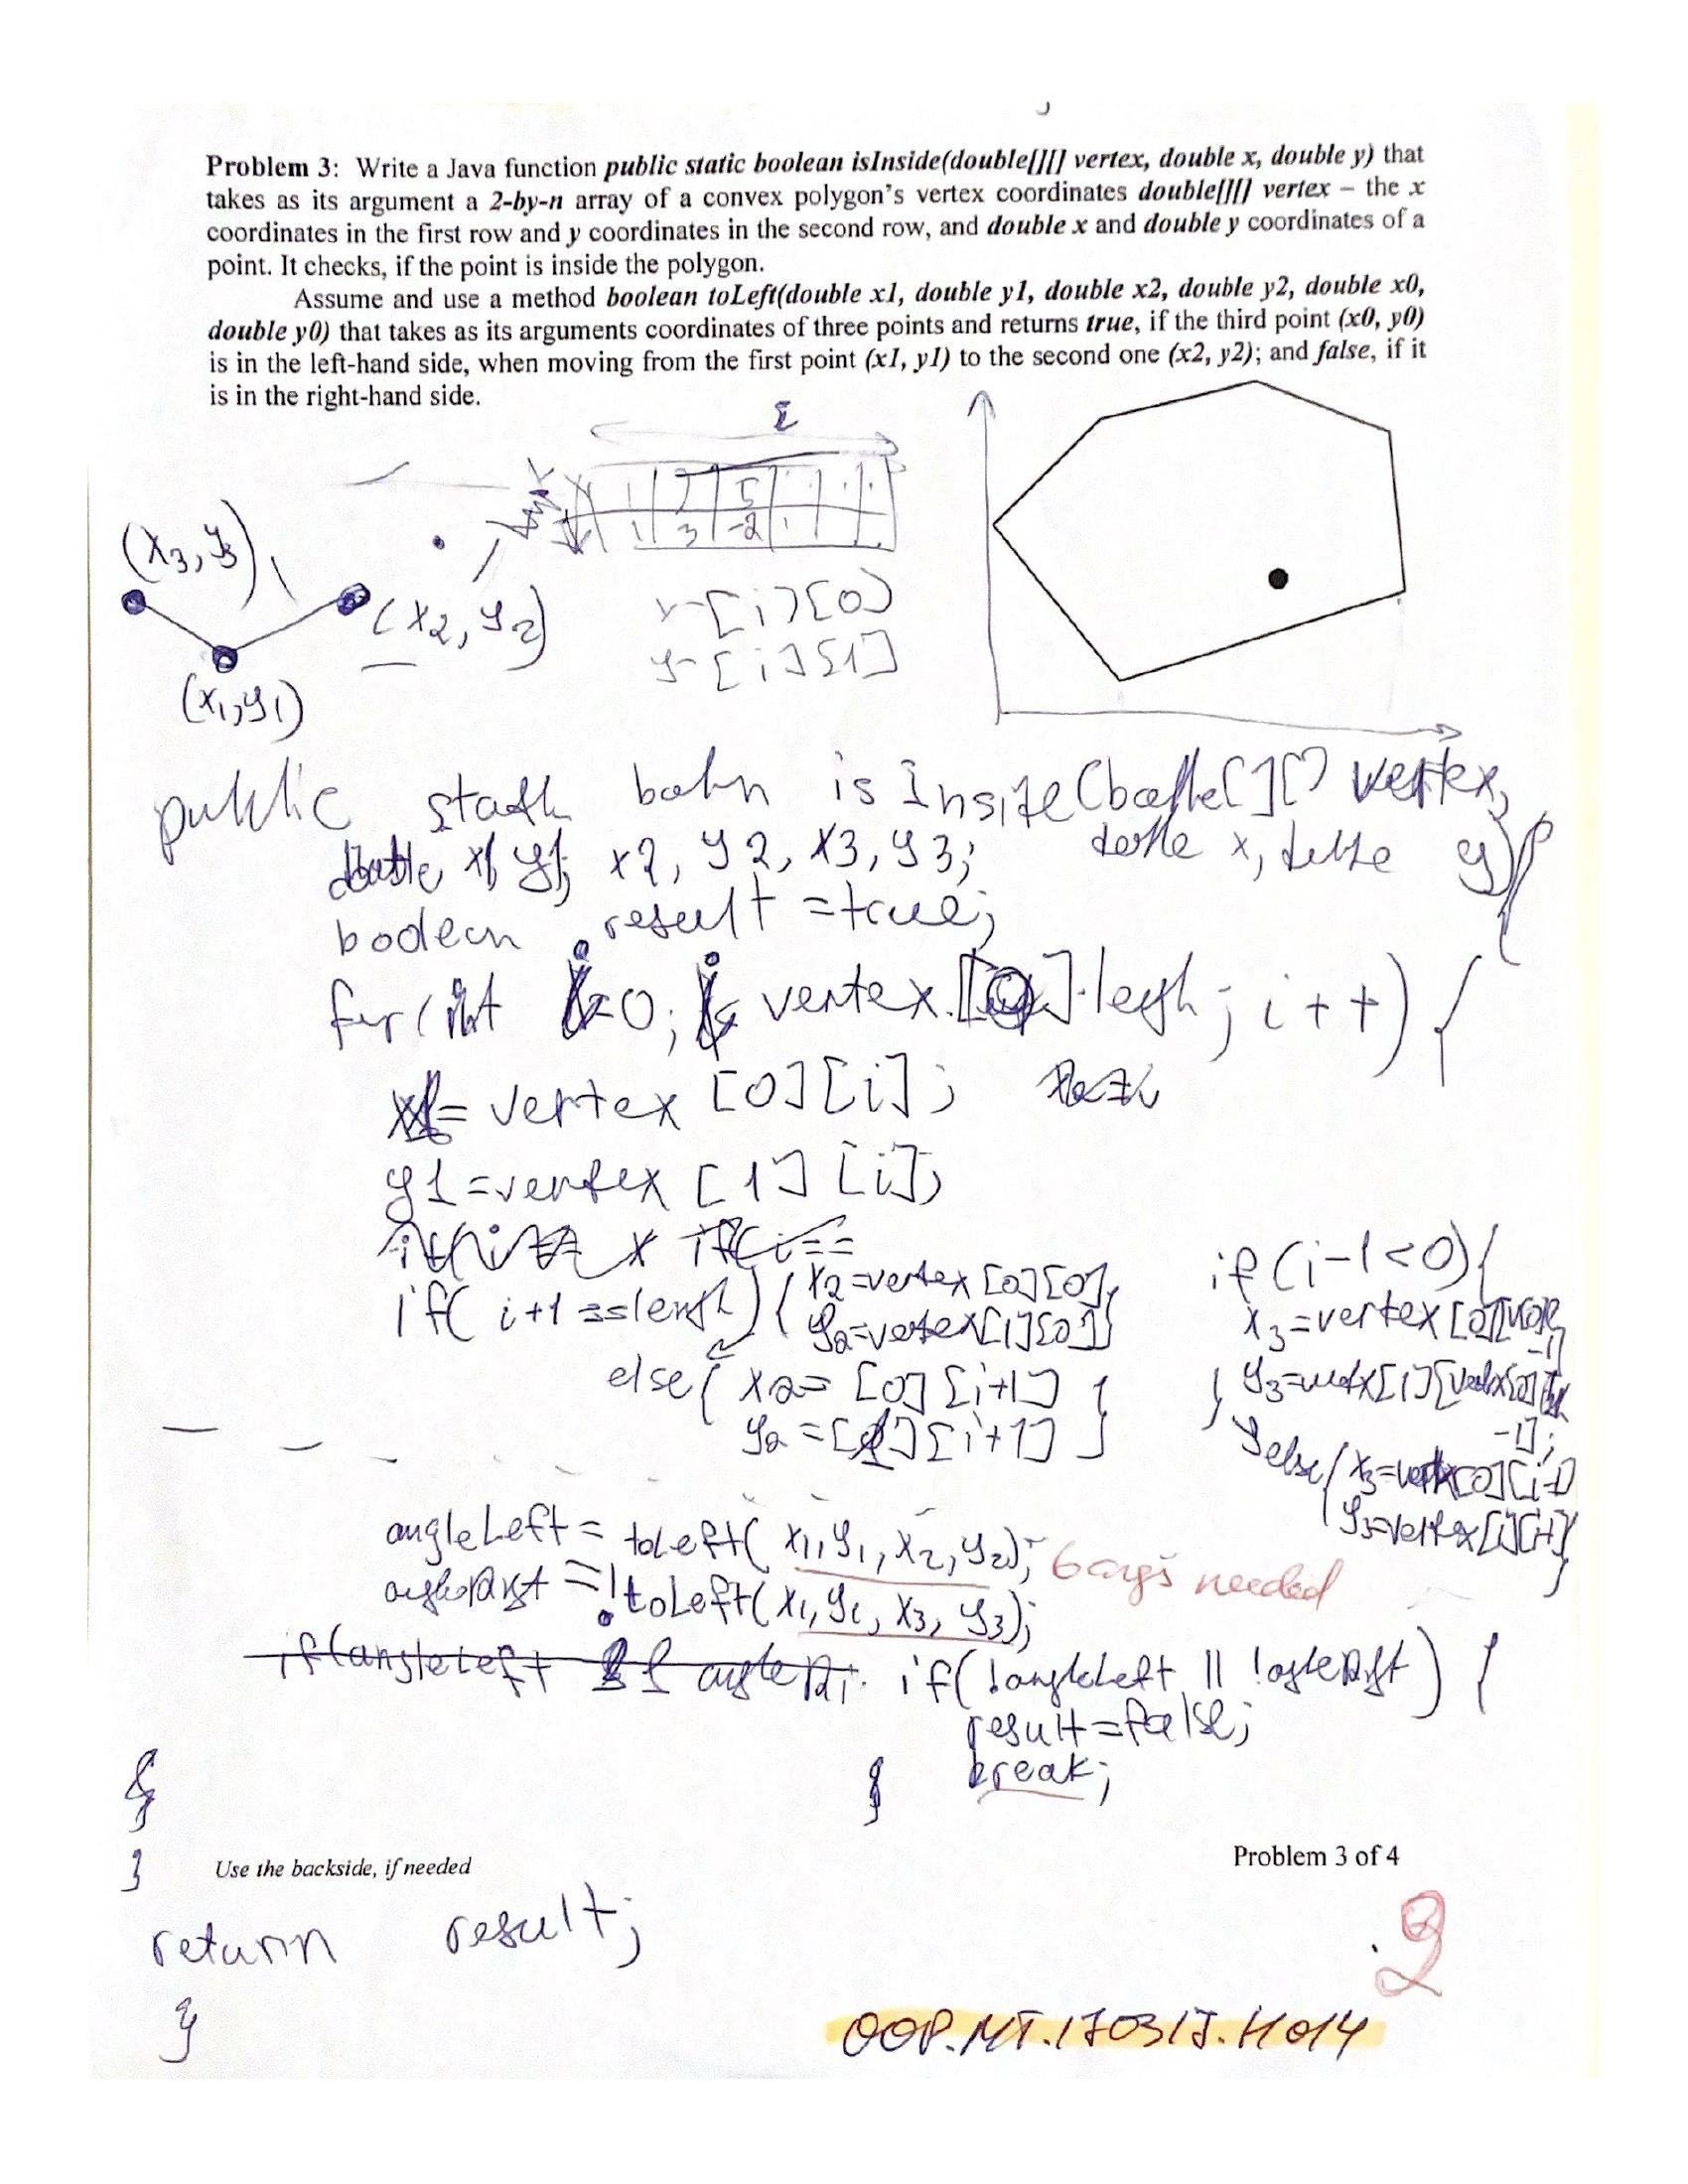 Problem 3: Write a Java function public static boolean isInside(double[][] vertex, double x, double y) that
takes as its argument a 2-by-n array of a convex polygon's vertex coordinates double[][] vertex – the x
coordinates in the first row and y coordinates in the second row, and double x and double y coordinates of a
point. It checks, if the point is inside the polygon.
Assume and use a method boolean toLeft(double x1, double y1, double x2, double y2, double x0,
double y0) that takes as its arguments coordinates of three points and returns true, if the third point (x0, y0)
is in the left-hand side, when moving from the first point (x1, y1) to the second one (x2, y2); and false, if it
is in the right-hand side.
1 7 5
1 3 -2
(x3, y3)
(x2, y2)
(x1, y1)
x-[i][0]
y-[i][1]
public static isInside( [][] vertex,
x, y) {
x1 y1, x2, y2, x3, y3;
boolean result = true;
for(int i=0; i< vertex.[0].length; i++) {
x1= vertex [0][i];
y1 =vertex [1] [i];
if(i==
if( i+1 ==length) { x2=vertex[0][0],
y2=vertex[1][0]}
else{ x2= [0][i+1]
y2 =[1][i+1] }
if (i-1<0){
x3=vertex[0][
-1]
y3= [1][vertex[0]
-1];
}else{ x3=vertex[0][i-1]
y3=vertex[1][i-1]
}
angleLeft = toLeft( x1,y1,x2,y2); 6 args needed
angleRight = !toLeft(x1,y1,x3,y3);
if(angleLeft && angleRi if( !angleLeft || !angleRight) {
result=false;
break;
}
}
}
Use the backside, if needed
Problem 3 of 4
return result;
}
9
OOP.MT.170317.H014